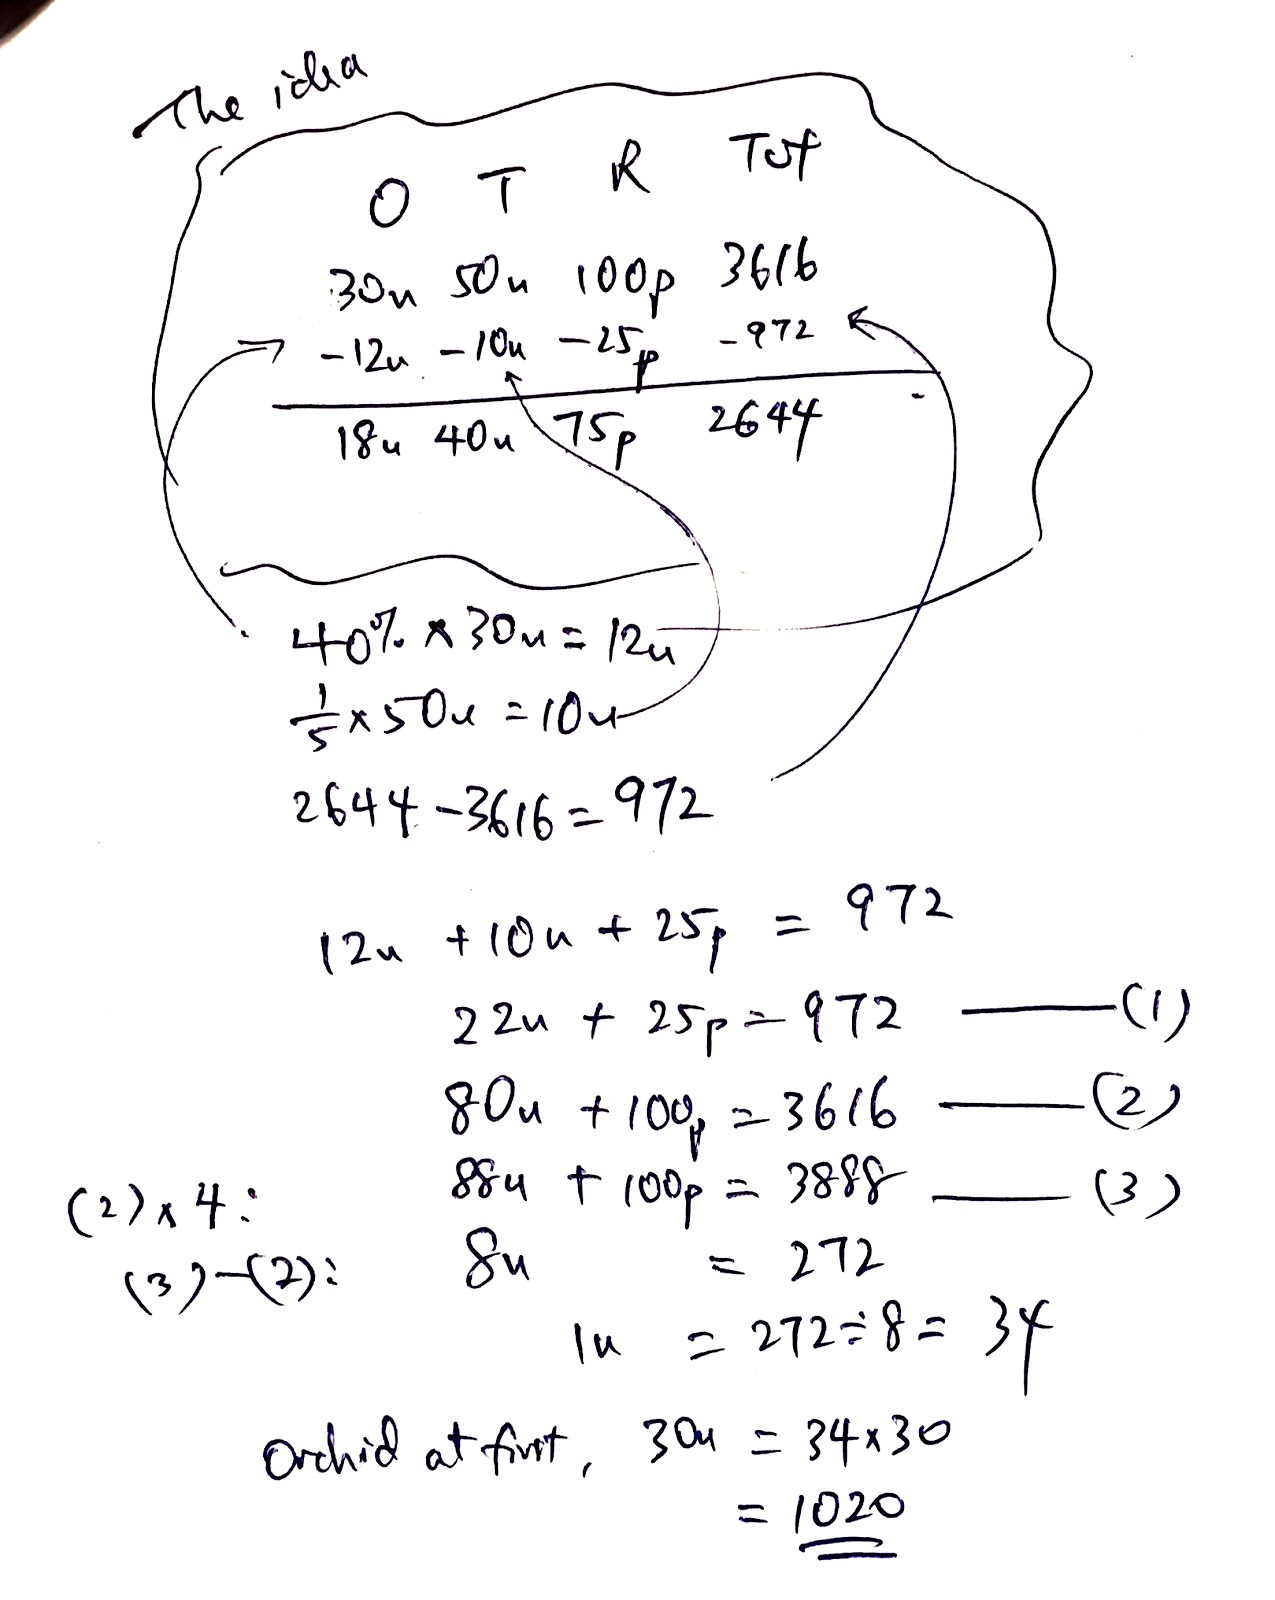 The idea
O T R Tot
30u 50u 100p 3616
-12u -10u -25p -972
18u 40u 75p 2644
40% x 30u = 12u
1/5 x 50u = 10u
2644 - 3616 = 972
12u + 10u + 25p = 972
22u + 25p = 972 —— (1)
80u + 100p = 3616 —— (2)
(2) x 4: 88u + 100p = 3888 —— (3)
(3) - (2): 8u = 272
1u = 272 ÷ 8 = 34
Orchid at first, 30u = 34 x 30
= 1020